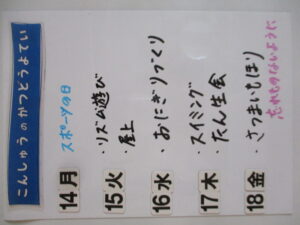 こんしゅうのかつどうよてい
14月 スポーツの日
15火 ・リズム遊び
・屋上
16水 ・おにぎりづくり
17木 ・スイミング
・たん生会
18金 ・さつまいもほり
忘れものないように